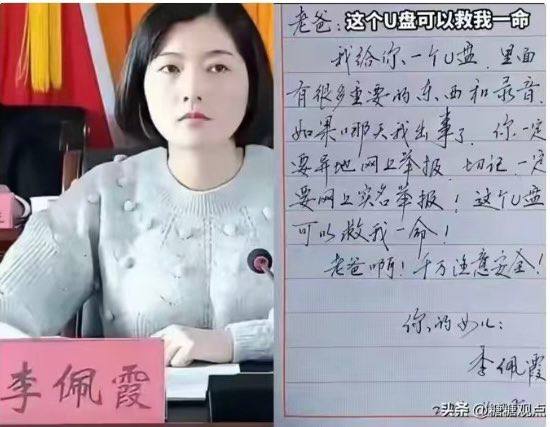 老爸：这个U盘可以救我一命
我给你一个U盘，里面
有很多重要的东西和录音，
如果哪天我出事了，你一定
要异地网上举报，切记，一定
要网上实名举报！这个U盘
可以救我一命！
老爸啊！千万注意安全！
你的女儿：
李佩霞
李佩霞
头条 @糖糖观点